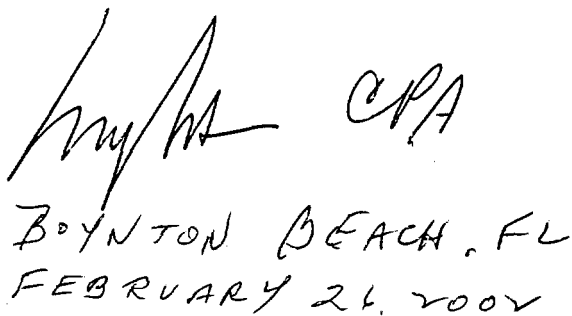 CPA
BOYNTON BEACH, FL
FEBRUARY 26, 2002